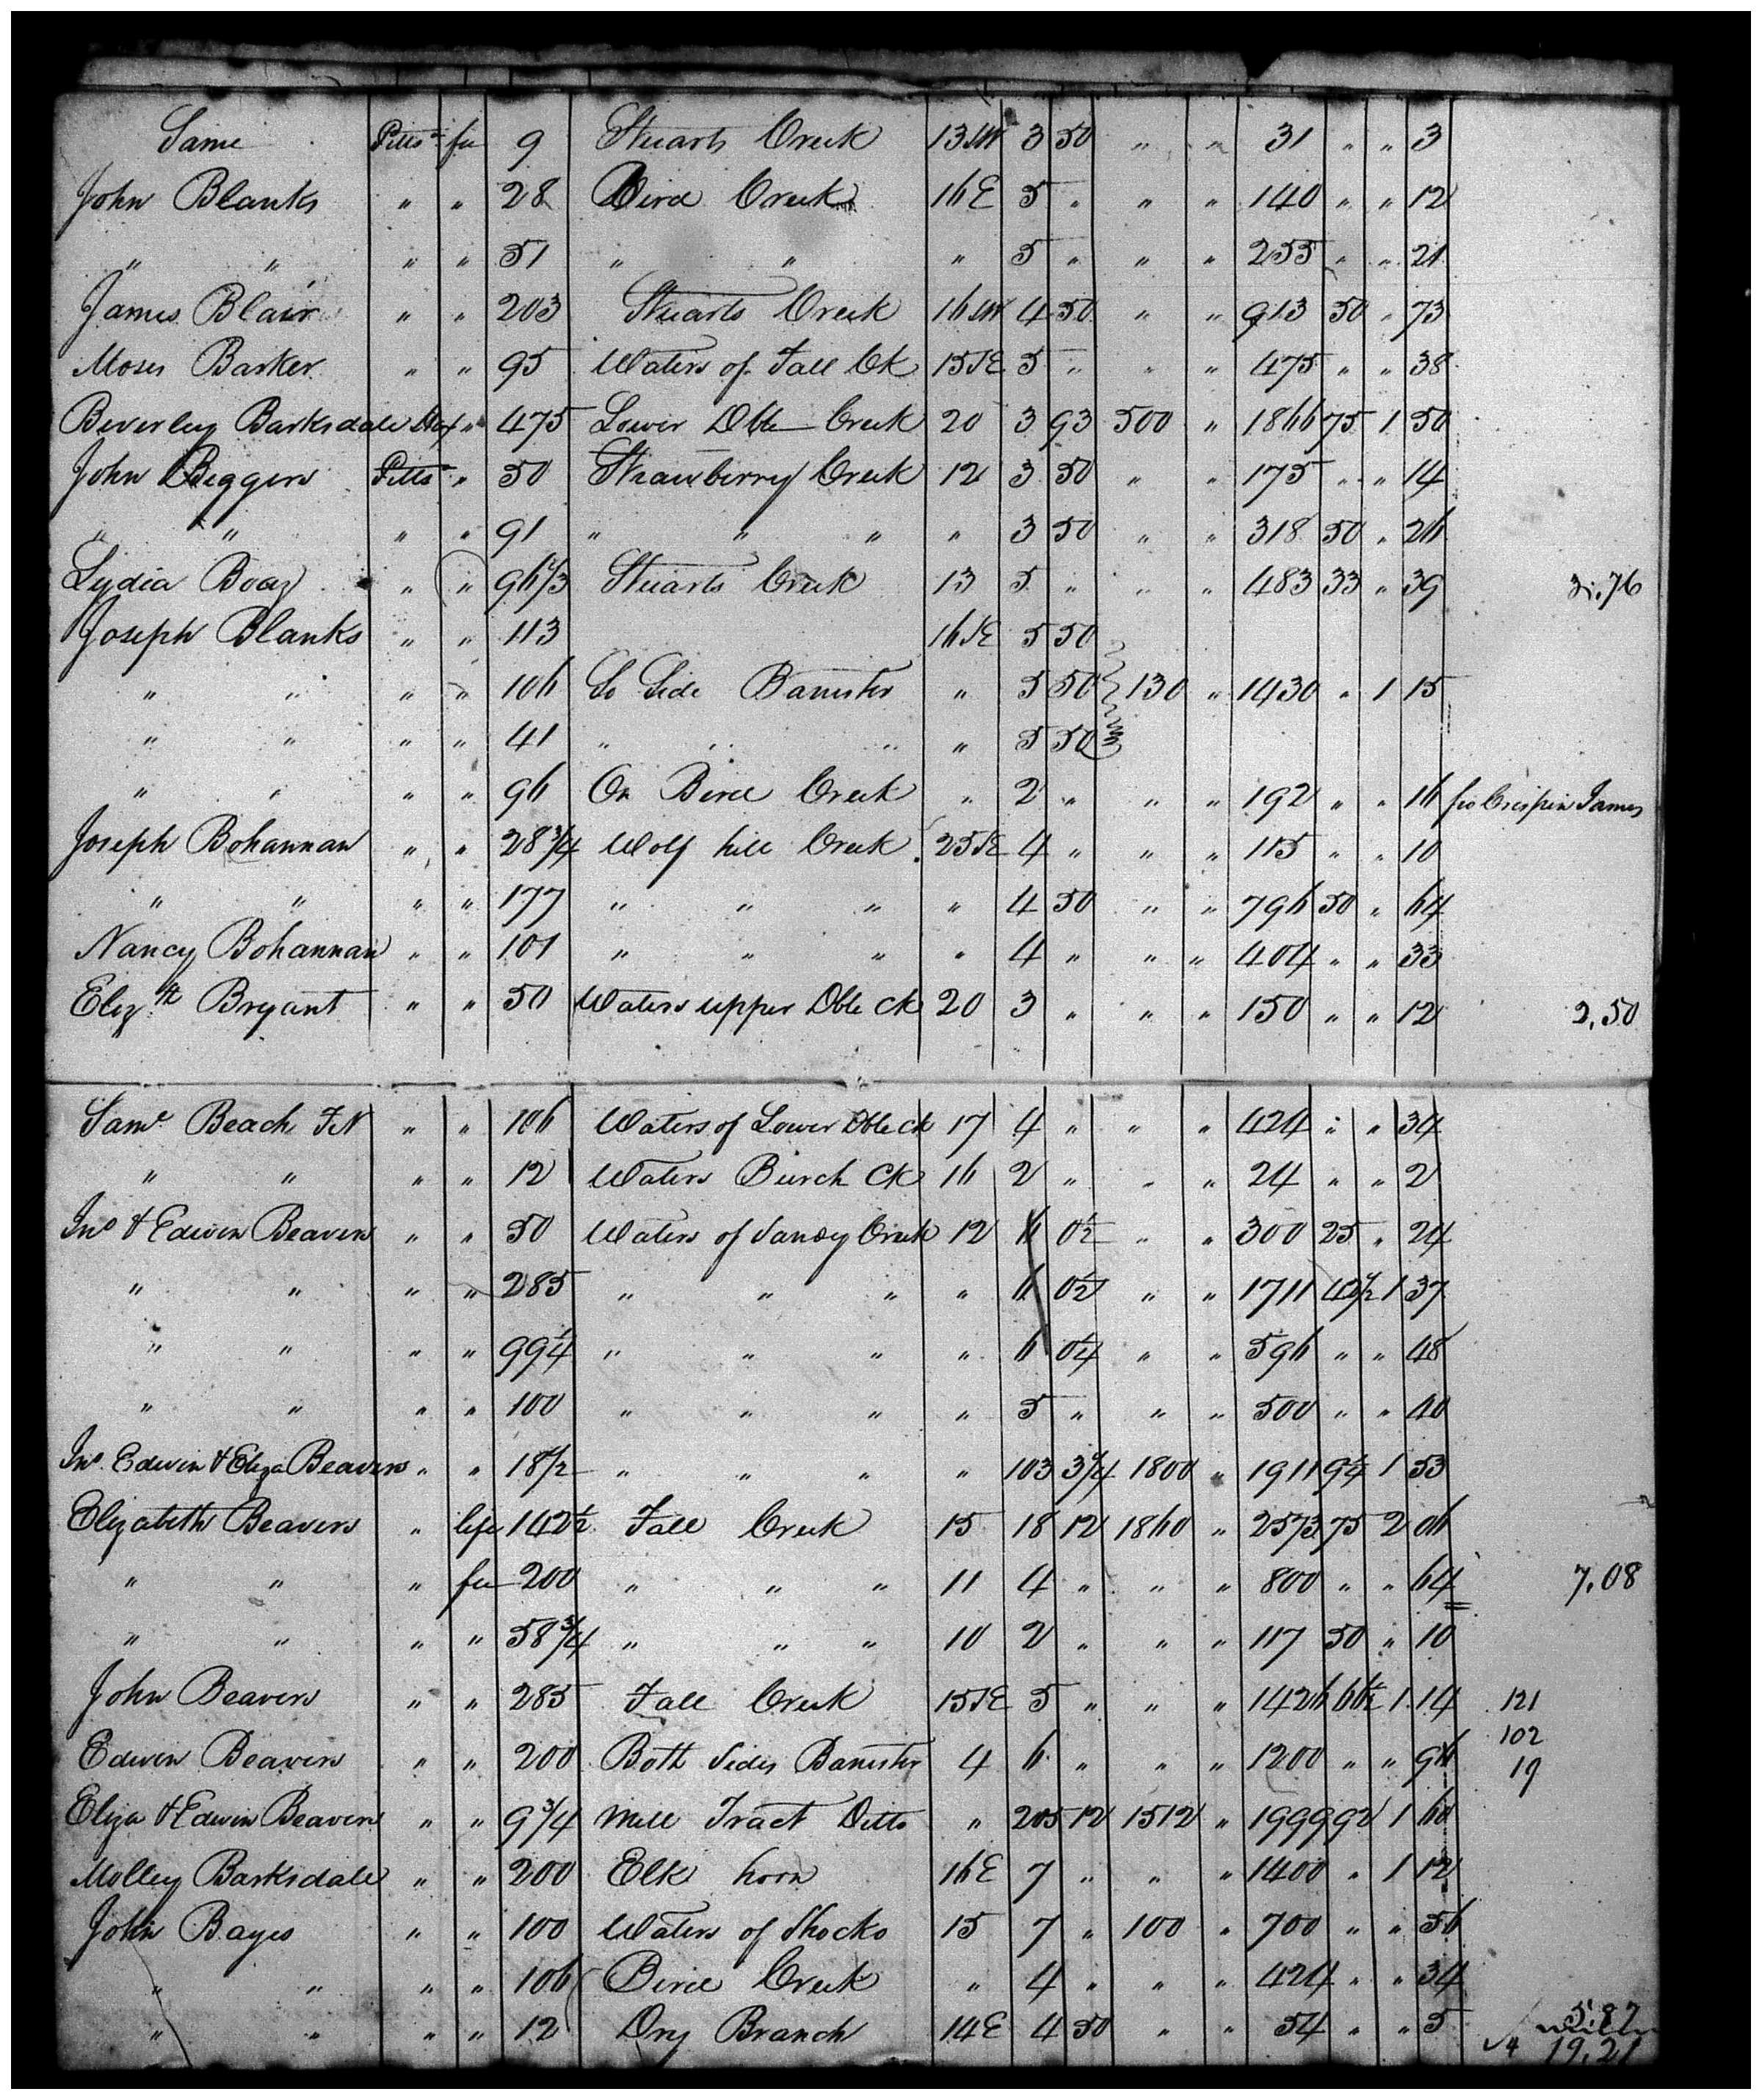 Same Pitts fee 9 Stuarts Creek 13 SW 3 50 " " 31 " " 3
John Blanks " " 28 Birch Creek 16 E 5 " " " 140 " " 12
" " " " 51 " " " 5 " " " 255 " " 21
James Blair " " 203 Stuarts Creek 16 SW 4 50 " " 913 50 " 73
Moses Barker " " 95 Waters of Fall Ck 15 SE 5 " " " 475 " " 38
Beverley Barksdale Hax " 475 Lower Dble Creek 20 3 93 500 " 1866 75 1 50
John Biggers Pitts " 50 Strawberry Creek 12 3 50 " " 175 " " 14
" " " " 91 " " " " 3 50 " " 318 50 " 26
Lydia Boaz " " 96 1/3 Stuarts Creek 13 5 " " " 483 33 " 39 3.76
Joseph Blanks " " 113 16 SE 5 50
" " " " 106 So Side Banister " 5 50 130 " 1430 " 1 15
" " " " 41 " " " " 5 50
" " " " 96 On Birch Creek " 2 " " " 192 " " 16 fro Crispin James
Joseph Bohannan " " 28 3/4 Wolf hill Creek 25 SE 4 " " " 115 " " 10
" " " " 177 " " " " 4 50 " " 796 50 " 64
Nancy Bohannan " " 101 " " " " 4 " " " 404 " " 33
Elizth Bryant " " 50 Waters upper Dble Ck 20 3 " " " 150 " " 12 2,50
Saml Beach " " 106 Waters of Lower Dble Ck 17 4 " " " 424 " " 34
" " " " 12 Waters Burch Ck 16 2 " " " 24 " " 2
Jno & Edwin Beavers " " 50 Waters of Sandy Creek 12 6 0 1/2 " " 300 25 " 24
" " " " 285 " " " " 6 0 1/2 " " 1711 42 1/2 1 37
" " " " 99 1/4 " " " " 6 0 1/4 " " 596 " " 48
" " " " 100 " " " " 5 " " " 500 " " 40
Jno Edwin & Eliza Beavers " " 18 1/2 " " " " 103 3 1/4 1800 " 1911 9 1/4 1 53
Elizabeth Beavers " life 142 1/2 Fall Creek 15 18 12 1860 " 2573 75 2 06
" " " fee 200 " " " 11 4 " " " 800 " " 64 7,08
" " " " 58 3/4 " " " 10 2 " " " 117 50 " 10
John Beavers " " 285 Fall Creek 15 SE 5 " " " 1426 66 1/2 1 14 121
Edwin Beavers " " 200 Both Sides Banister 4 6 " " " 1200 " " 96 102
19
Eliza & Edwin Beavers " " 9 3/4 Mill Tract Ditto " 205 12 1512 " 1999 92 1 60
Molley Barksdale " " 200 Elk horn 16 E 7 " " " 1400 " 1 12
John Bayes " " 100 Waters of Shocko 15 7 " 100 " 700 " " 56
" " " " 106 Birch Creek " 4 " " " 424 " " 34
" " " " 12 Dry Branch 14 E 4 50 " " 54 " " 5 5.87
19.21